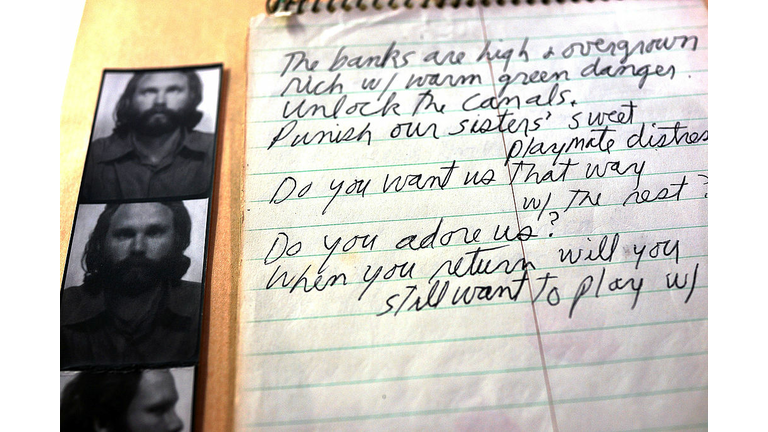 The banks are high & overgrown
rich w/ warm green danger.
Unlock the canals.
Punish our sisters' sweet
playmate distres
Do you want us that way
w/ the rest?
Do you adore us?
When you return will you
still want to play w/